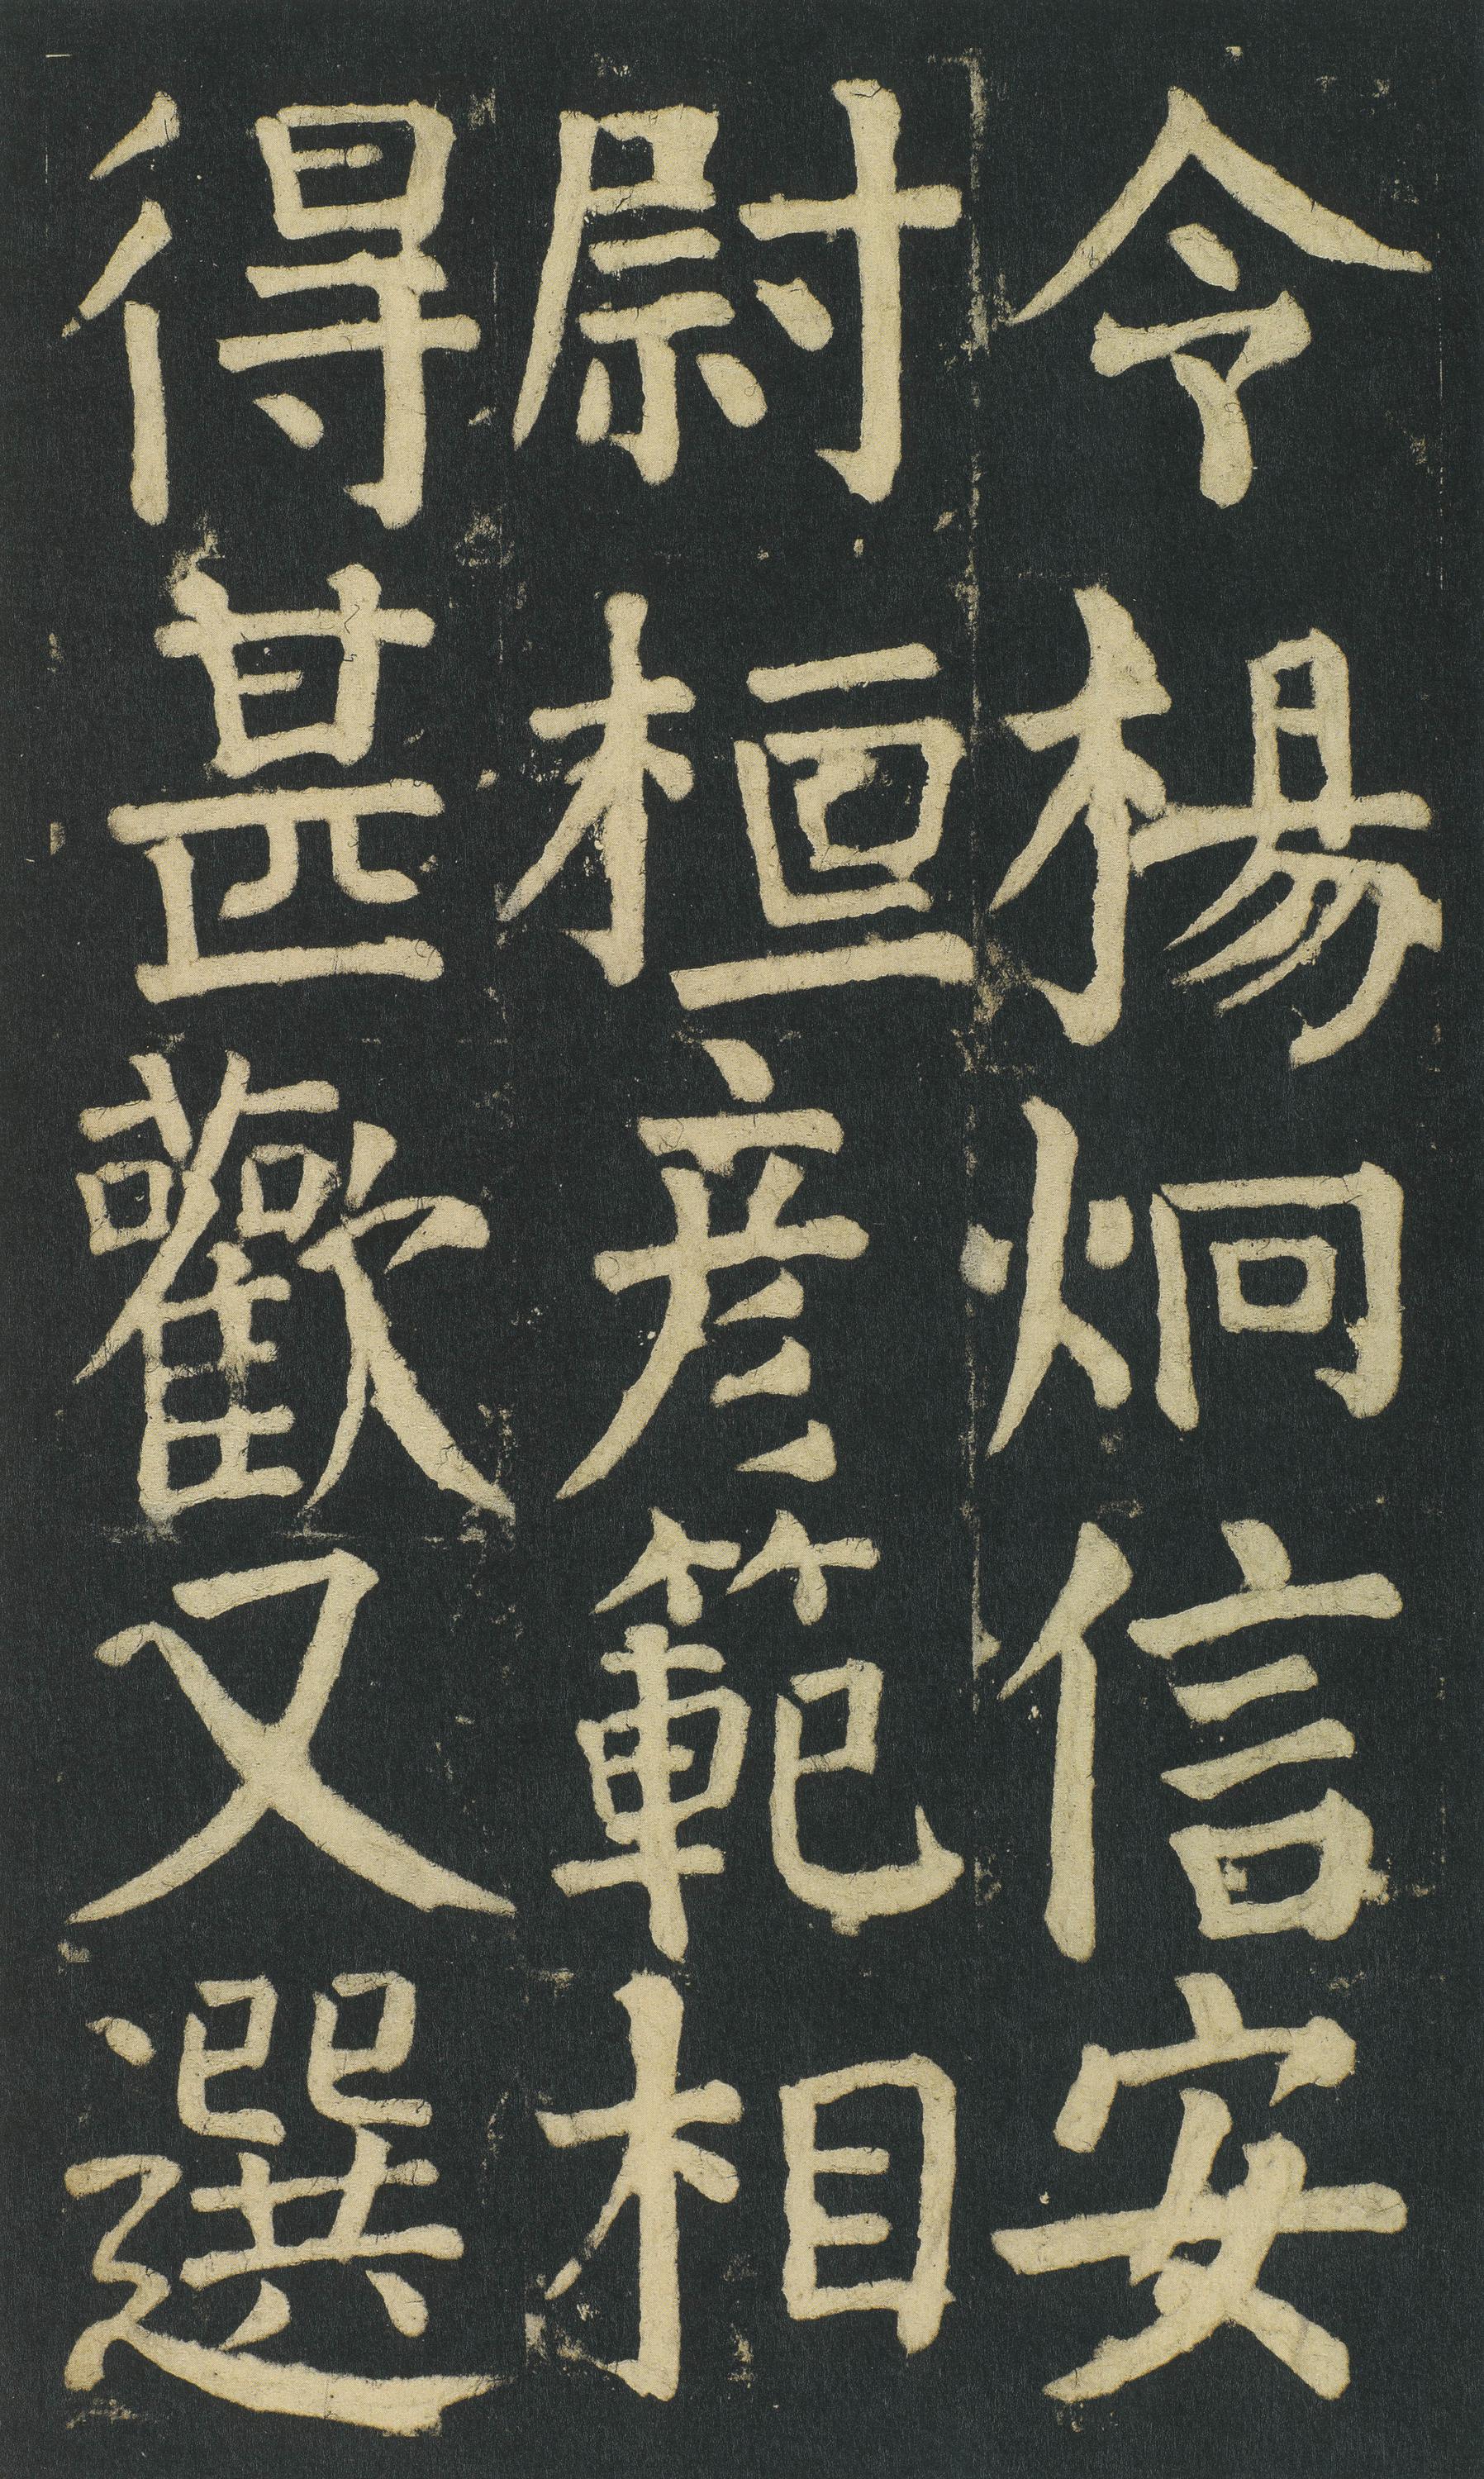 令楊炯信安
尉桓彦範相
得甚歡又選